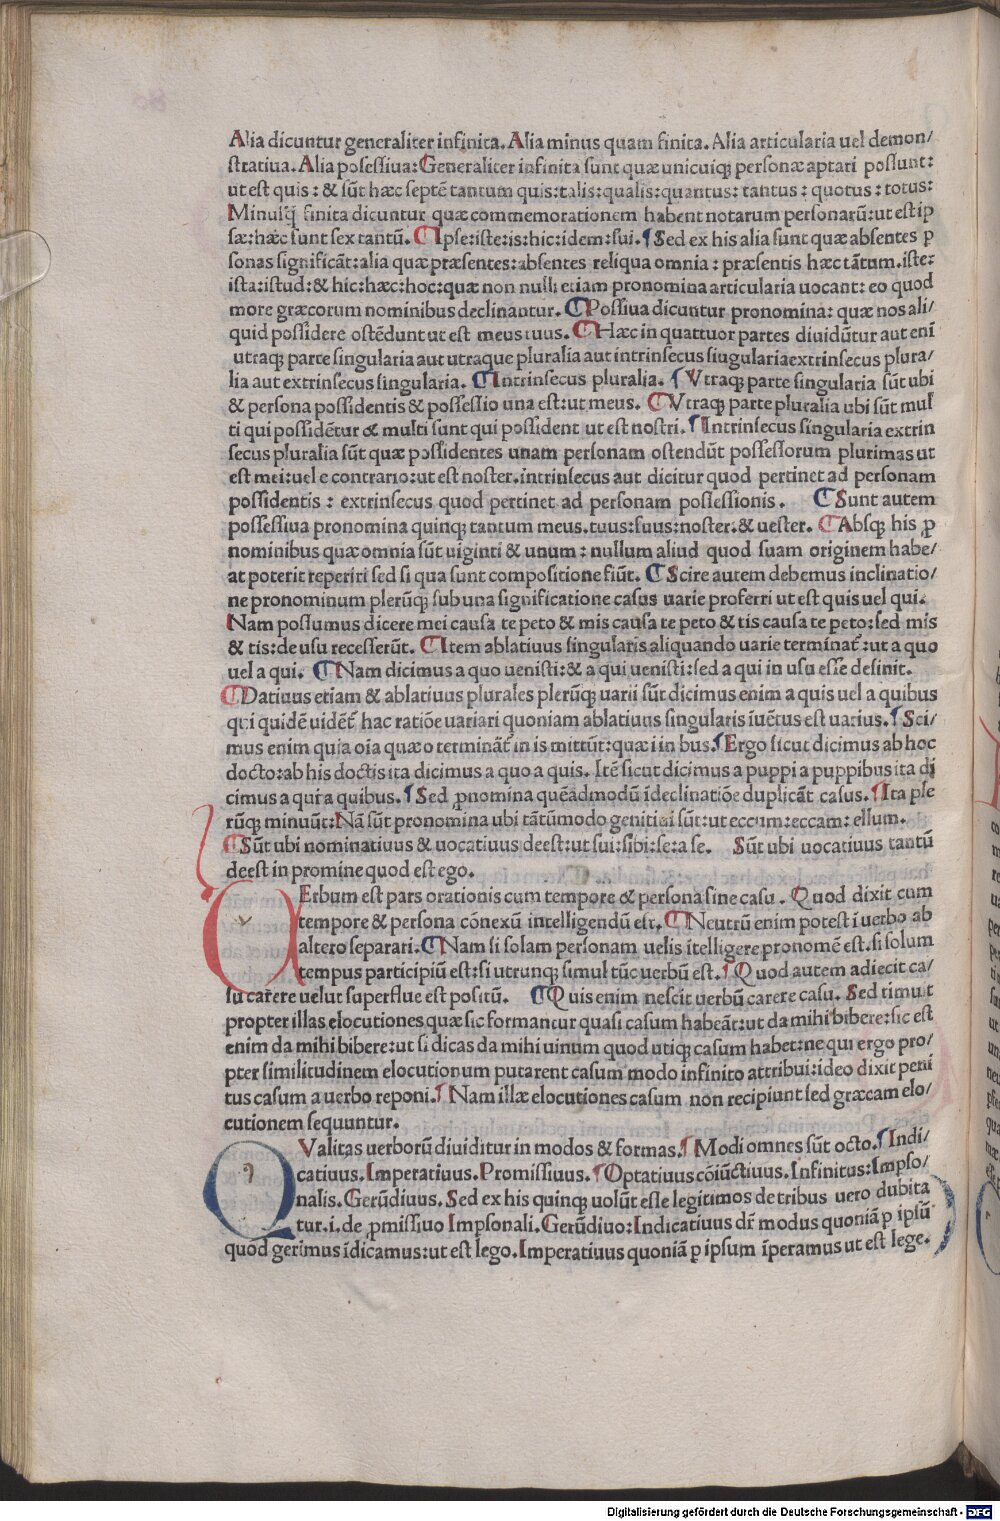 Alia dicuntur generaliter infinita. Alia minus quam finita. Alia articularia uel demon/
stratiua. Alia possessiua: Generaliter infinita sunt quæ unicuiq; personæ aptari possunt:
ut est quis: & sũt hæc septẽ tantum quis: talis: qualis: quantus: tantus: quotus: totus:
Minusq̃ finita dicuntur quæ commemorationem habent notarum personarũ: ut est ip
sæ: hæc sunt sex tantũ. Ipse: iste: is: hic: idem: sui. Sed ex his alia sunt quæ absentes ꝑ
sonas significãt: alia quæ præsentes: absentes reliqua omnia: præsentis hæc tãtum. iste:
ista: istud: & hic: hæc: hoc: quæ non nulli etiam pronomina articularia uocant: eo quod
more græcorum nominibus declinantur. Possiua dicuntur pronomina: quæ nos ali/
quid possidere ostẽdunt ut est meus tuus. Hæc in quattuor partes diuidũtur aut enĩ
utraq; parte singularia aut utraque pluralia aut intrinsecus siugularia extrinsecus plura/
lia aut extrinsecus singularia. Intrinsecus pluralia. Vtraq; parte singularia sũt ubi
& persona possidentis & possessio una est: ut meus. Vtraq; parte pluralia ubi sũt mul
ti qui possidẽtur & multi sunt qui possident ut est nostri. Intrinsecus singularia extrin
secus pluralia sũt quæ possidentes unam personam ostendũt possessorum plurimas ut
est mei: uel e contrario: ut est noster. intrinsecus aut dicitur quod pertinet ad personam
possidentis: extrinsecus quod pertinet ad personam possessionis. Sunt autem
possessiua pronomina quinq; tantum meus. tuus: suus: noster. & uester. Absq; his ꝓ
nominibus quæ omnia sũt uiginti & unum: nullum aliud quod suam originem habe/
at poterit reperiri sed si qua sunt compositione fiũt. Scire autem debemus inclinatio/
ne pronominum plerũq; sub una significatione casus uarie proferri ut est quis uel qui.
Nam possumus dicere mei causa te peto & mis causa te peto & tis causa te peto: sed mis
& tis: de usu recesserũt. Item ablatiuus singularis aliquando uarie terminat̃: ut a quo
uel a qui. Nam dicimus a quo uenisti: & a qui uenisti: sed a qui in usu esse desinit.
Datiuus etiam & ablatiuus plurales plerũq; uarii sũt dicimus enim a quis uel a quibus
qui quidẽ uidẽt̃ hac ratiõe uariari quoniam ablatiuus singularis ĩuẽtus est uarius. Sci/
mus enim quia oĩa quæ o terminãt̃ in is mittũt: quæ i in bus. Ergo sicut dicimus ab hoc
docto: ab his doctis ita dicimus a quo a quis. Itẽ sicut dicimus a puppi a puppibus ita di
cimus a qui a quibus. Sed ꝓnomina quẽadmodũ ĩ declinatiõe duplicãt casus. Ita ple
rũq; minuũt: Nã sũt pronomina ubi tãtũmodo genitiui sũt: ut eccum: eccam: ellum.
Sũt ubi nominatiuus & uocatiuus deest: ut sui: sibi: se: a se. Sũt ubi uocatiuus tantũ
deest in promine quod est ego.
VErbum est pars orationis cum tempore & persona sine casu. Quod dixit cum
tempore & persona cõnexũ intelligendũ est. Neutrũ enim potest ĩ uerbo ab
altero separari. Nam si solam personam uelis ĩtelligere pronomẽ est. si solum
tempus participiũ est: si utrunq; simul tũc uerbũ est. Quod autem adiecit ca/
su carere uelut superflue est positũ. Quis enim nescit uerbũ carere casu. Sed timuit
propter illas elocutiones quæ sic formantur quasi casum habeãt: ut da mihi bibere: sic est
enim da mihi bibere: ut si dicas da mihi uinum quod utiq; casum habet: ne qui ergo pro/
pter similitudinem elocutionum putarent casum modo infinito attribui: ideo dixit peni
tus casum a uerbo reponi. Nam illæ elocutiones casum non recipiunt sed græcam elo/
cutionem sequuntur.
QValitas uerborũ diuiditur in modos & formas. Modi omnes sũt octo. Indi/
catiuus. Imperatiuus. Promissiuus. Optatiuus cõiũctiuus. Infinitus: Impso/
nalis. Gerũdiuus. Sed ex his quinque uolũt esse legitimos de tribus uero dubita
tur. i. de ꝓmissiuo Impsonali. Gerũdiuo: Indicatiuus dr̃ modus quoniã ꝑ ipsũ
quod gerimus ĩdicamus: ut est lego. Imperatiuus quoniã ꝑ ipsum ĩperamus ut est lege.
Digitalisierung gefördert durch die Deutsche Forschungsgemeinschaft - DFG